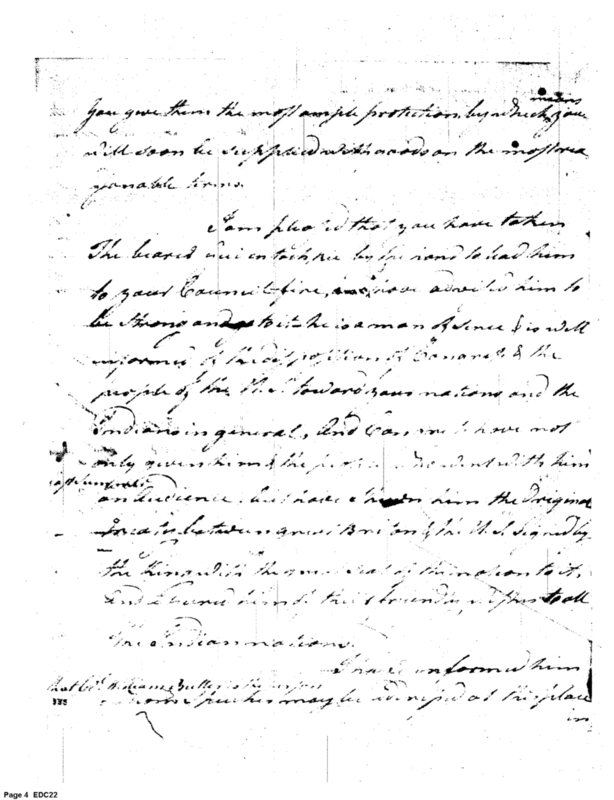 you give them the most ample protection by which means you
will soon be supplied with goods on the most rea
sonable terms.
I am pleased that you have taken
The bearer by the hand to lead him
to your Council fire, have advised him to
be strong and he is a man of sence & is well
informed of the disposition of Congress & the
people of the toward your nations and the
Indians in general, And Congress have not
only given him & the people who went with him
an audience, but have shewn him the Original
Treaty between great Briton & the U.S. signed by
the King with the great seal of the nation to it,
and assured him of their friendship to all
The Indian nations.
I have informed him
that Col. Butler
speeches may be at this place
in
Page 4 EDC22